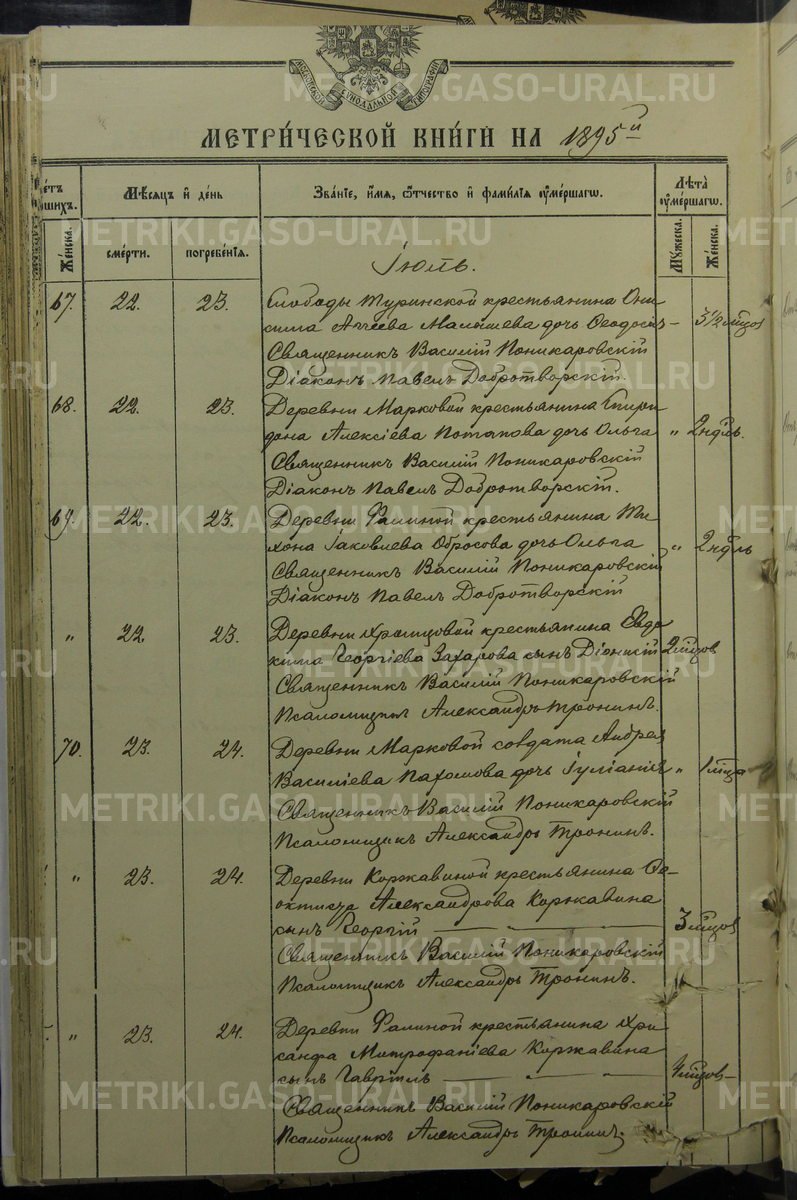 МОСКОВСКОЙ СѴНОДАЛЬНОЙ ТИПОГРАФІИ
МЕТРИ́ЧЕСКОЙ КНИ́ГИ НА 1895й
Мѣсяцъ и҆ де́нь
Зва́нїе, и҆́мя, ѻ҆́тчество и҆ фами́лїя ᲂу҆ме́ршагѡ.
Лѣта̀ ᲂу҆ме́ршагѡ.
Же́нска.
сме́рти.
погребе́нїя.
Му́жеска.
Же́нска.
Іюль.
67. 22. 23. Слободы Туринской крестьянина Они-
сима Аггеева Малышева дочь Ѳеодосія 3 1/2 мѣсцов
Священникъ Василій Поникаровскій
Діаконъ Павелъ Добротворскій.
68. 22. 23. Деревни Марковой крестьянина Спири-
дона Алексіева Потапова дочь Ольга " 2 ндѣль.
Священникъ Василій Поникаровскій
Діаконъ Павелъ Добротворскій.
69. 22. 23. Деревни Фалиной крестьянина Ти-
хона Іаковлева Обросова дочь Ольга " 2 ндѣль
Священникъ Василій Поникаровскій
Діаконъ Павелъ Добротворскій
" 22 23. Деревни Храмцовой крестьянина Евдо-
кима Георгіева Захарова сынъ Діонисій 2 мѣсцов
Священникъ Василій Поникаровскій
Псаломщикъ Александръ Тронинъ.
70. 23. 24. Деревни Марковой солдата Андрея
Василіева Пахомова дочь Іуліанія " 1 мѣсца
Священникъ Василій Поникаровскій
Псаломщикъ Александръ Тронинъ.
" 23. 24. Деревни Коржавиной крестьянина Ѳе-
октиста Александрова Коржавина
сынъ Георгій 3 мѣсцов
Священникъ Василій Поникаровскій
Псаломщикъ Александръ Тронинъ.
" 23. 24. Деревни Фалиной крестьянина Хри-
санфа Митрофаніева Коржавина
сынъ Гавріилъ 4 мѣсцов
Священникъ Василій Поникаровскій
Псаломщикъ Александръ Тронинъ.
METRIKI.GASO-URAL.RU